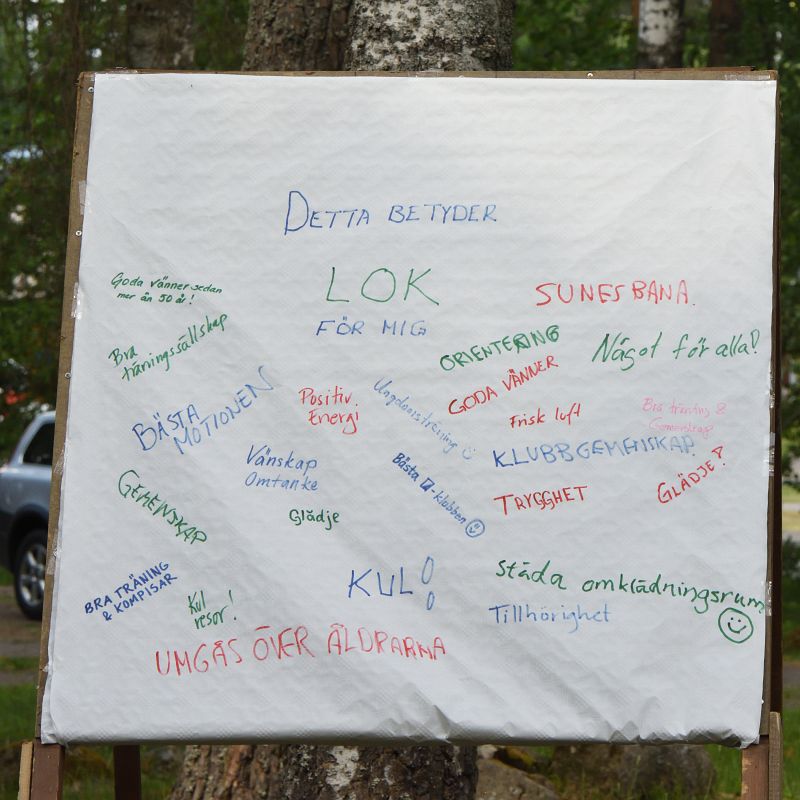 DETTA BETYDER
LOK
FÖR MIG
Goda vänner sedan
mer än 50 år!
SUNES BANA.
Bra
träningssällskap
ORIENTERING
Något för alla!
BÄSTA
MOTIONEN
Positiv.
Energi
Ungdomsträning
GODA VÄNNER
Frisk luft
Bra träning &
Gemenskap
KLUBBGEMENSKAP
Vänskap
Omtanke
Bästa O-klubben
TRYGGHET
GLÄDJE!
GEMENSKAP
Glädje
BRA TRÄNING
& KOMPISAR
Kul
resor!
KUL!
Städa omklädningsrum
Tillhörighet
UMGÅS ÖVER ÅLDRARNA